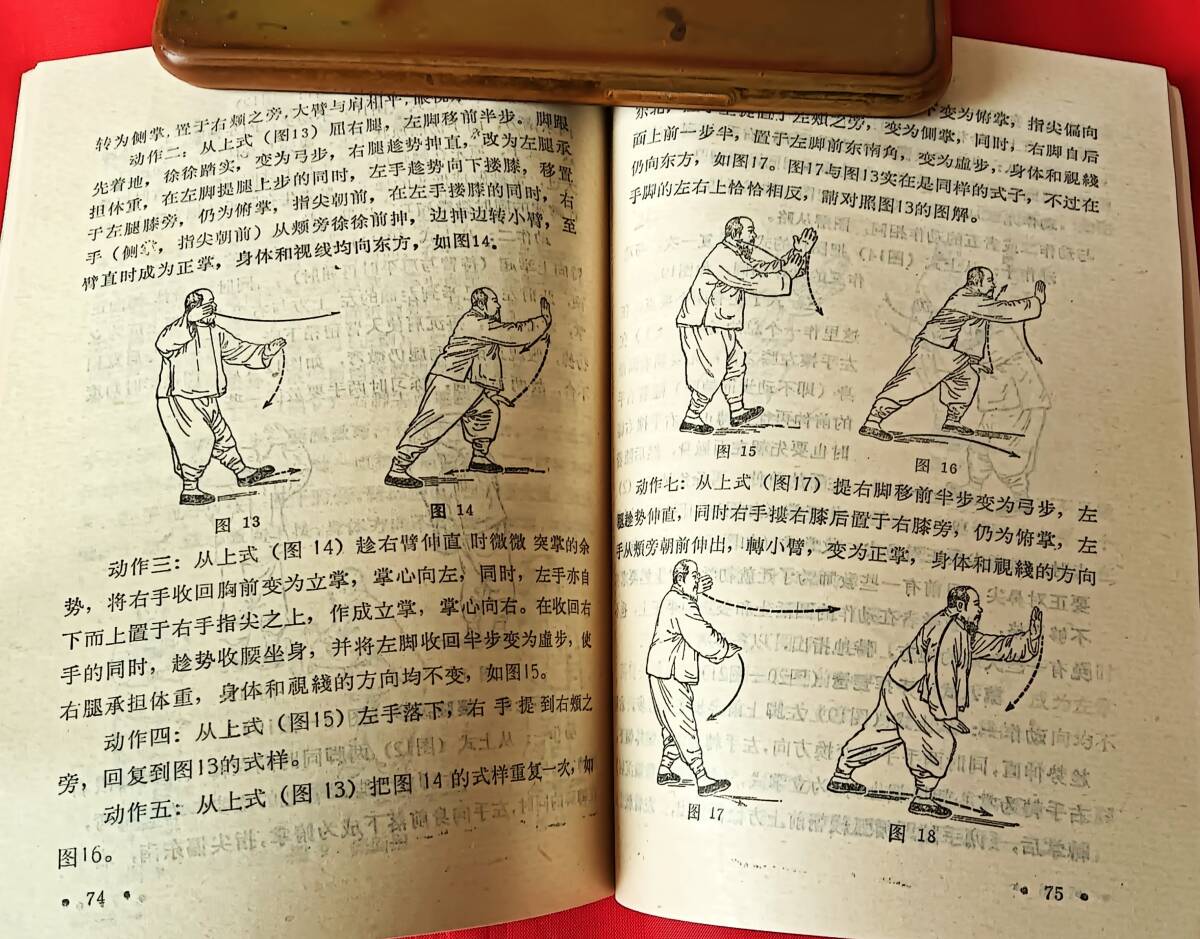 转为侧掌,置于右颊之旁,大臂与肩相平,眼视
动作二:从上式(图13)屈右腿,左脚移前半步。脚跟
先着地,徐徐踏实,变为弓步,右腿趁势抻直,改为左腿承
担体重,在左脚提腿上步的同时,左手趁势向下搂膝,移置
于左腿膝旁,仍为俯掌,指尖朝前,在左手搂膝的同时,右
手(侧掌,指尖朝前)从颊旁徐徐前抻,边抻边转小臂,至
臂直时成为正掌,身体和视线均向东方,如图14。
图 13
图 14
动作三:从上式(图 14)趁右臂伸直时微微突掌的余
势,将右手收回胸前变为立掌,掌心向左,同时,左手亦自
下而上置于右手指尖之上,作成立掌,掌心向右。在收回右
手的同时,趁势收腰坐身,并将左脚收回半步变为虚步,使
右腿承担体重,身体和視綫的方向均不变,如图15。
动作四:从上式(图15)左手落下,右手提到右颊之
旁,回复到图13的式样。
动作五:从上式(图 13)把图 14 的式样重复一次,如
图16。
• 74 •
左颊之旁,变为侧掌,同时,右脚自后
不变为俯掌,指尖偏向
面上前一步半,置于左脚前东南角,变为虚步,身体和視綫
仍向东方,如图17。图17与图13实在是同样的式子,不过在
手脚的左右上恰恰相反,請对照图13的图解。
图 15
图 16
动作七:从上式(图17)提右脚移前半步变为弓步,左
腿趁势伸直,同时右手搂右膝后置于右膝旁,仍为俯掌,左
手从颊旁朝前伸出,轉小臂,变为正掌,身体和視綫的方向
图 17
图 18
• 75 •